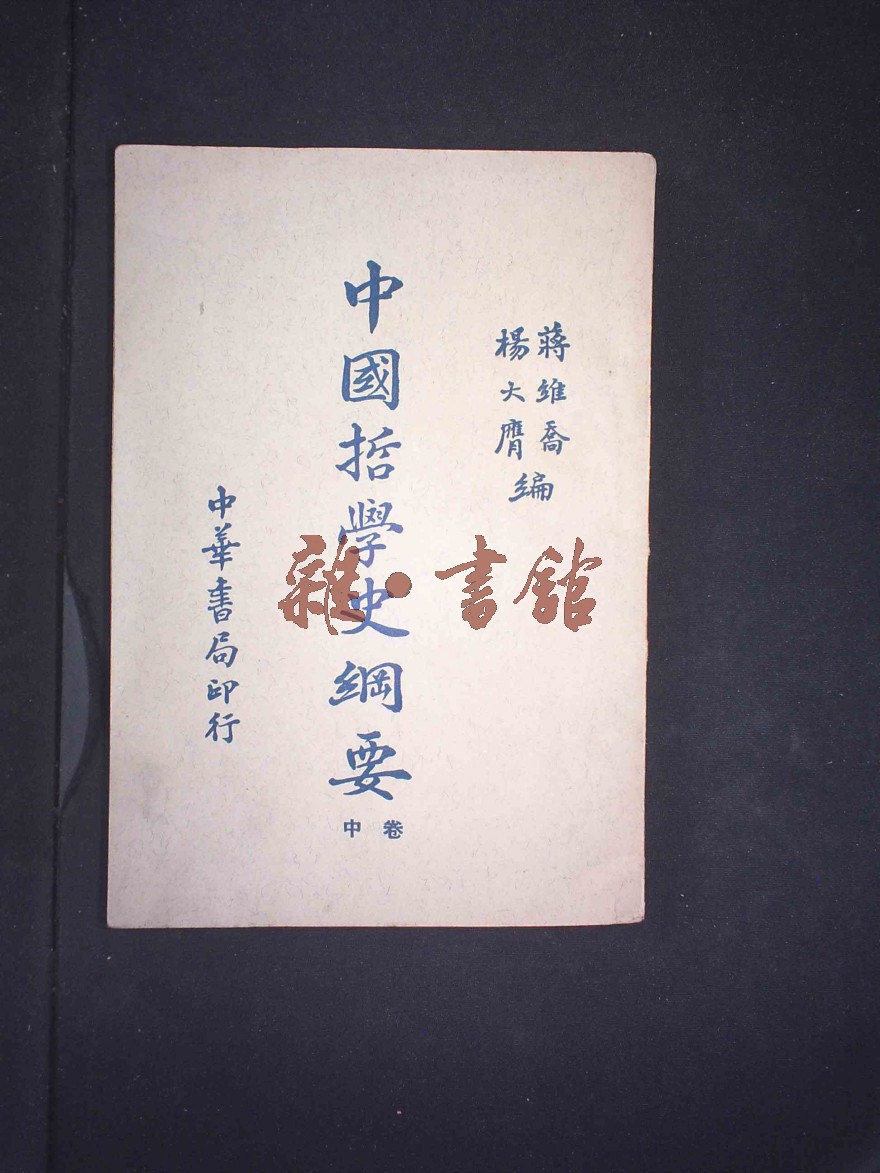 蔣維喬
楊大膺
編
中國哲學史綱要
卷中
中華書局印行
雜·書館